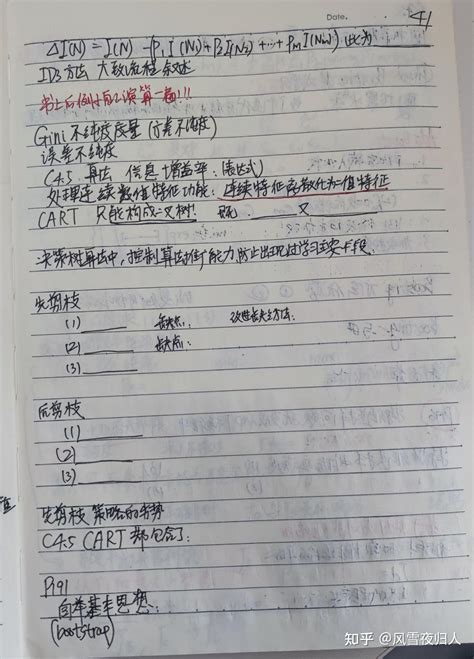 Date. 41
ΔI(N) = I(N) - (P₁I(N₁) + P₂I(N₂) + … + PmI(Nm)) 此为
ID3方法 大致流程 叙述
书上后例子自己演算一遍!!!
Gini不纯度度量 (方差不纯度)
误差不纯度
C4.5 算法 信息增益率:(表达式)
处理连续数值特征功能:连续特征离散化为二值特征
CART 只能构成二叉树! 既 又
决策树算法中,控制算法推广能力,防止出现过学习主要手段
先剪枝
(1) 缺点: 改进缺点方法:
(2) 缺点:
后剪枝
(1)
(2)
(3)
先剪枝 策略的劣势
C4.5 CART 都包含了:
P191
自举基本思想:
(bootstrap)
知乎 @风雪夜归人